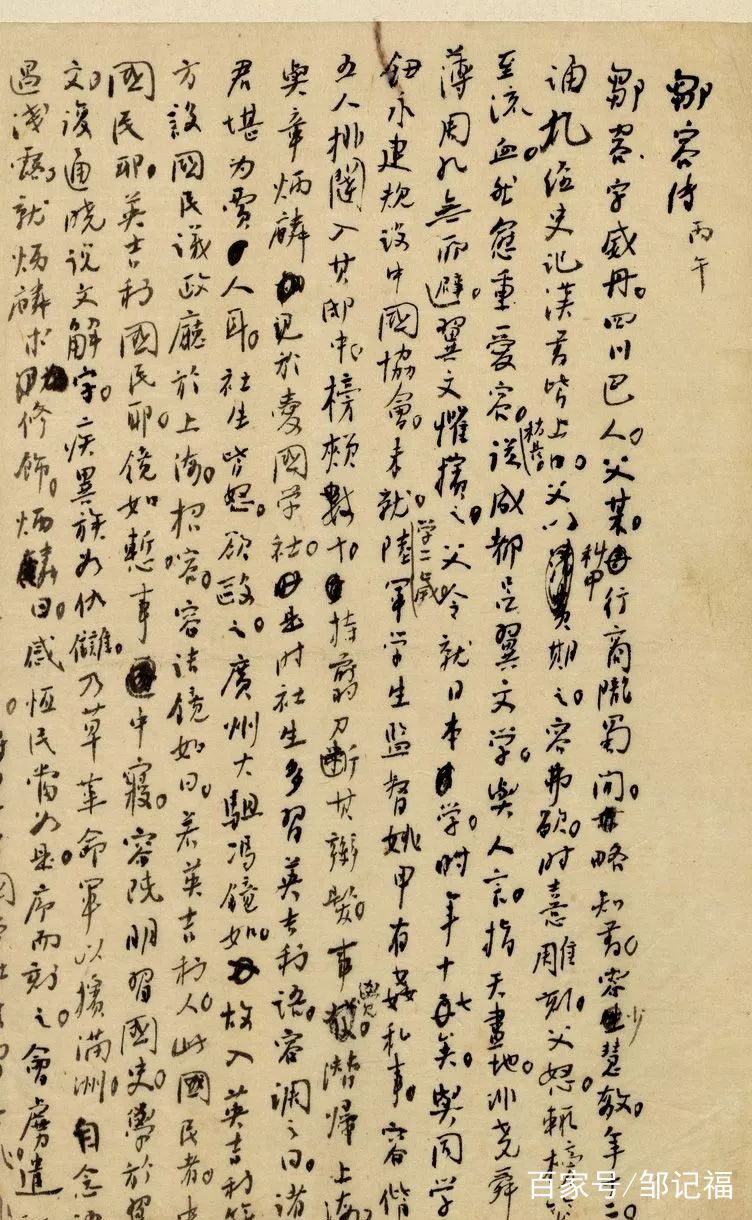 鄒容傳 丙午
鄒容字威丹。四川巴人。父某。行商隴蜀間。略知書。容少慧敏。年十二。
誦九經史記漢書皆上口。父以科甲期之。容弗欲。時憙雕刻。父怒。輒
至流血。然愈重愛容。稍長從成都呂翼文學。與人言。指天畫地。非堯舜
薄周孔無所避。翼文懼。擯之。父令就日本學。時年十七矣。與同學
鈕永建規設中國協會。未就。學二歲陸軍學生監督姚甲有姦私事。容偕
五人排闥入其邸中。榜頰數十。持翦刀斷其辮髮。事覺。潛歸上海。
與章炳麟見於愛國學社。是時社生多習英吉利語。容調之曰。諸
君堪为賈人耳。社生皆怒。欲毆之。廣州大駔馮鏡如。故入英吉利
方設國民議政廳於上海。招容。容詰鏡如曰。若英吉利人。此國民者。中
國民耶。英吉利國民耶。鏡如慙事中寢。容既明習國史。學於翼
文。復通曉说文解字。疾異族如仇讎。乃草革命軍以擯滿洲。自念
過淺露。就炳麟求修飾。炳麟曰。感恆民當如是。序而刻之。會虜遣
百家号/邹记福